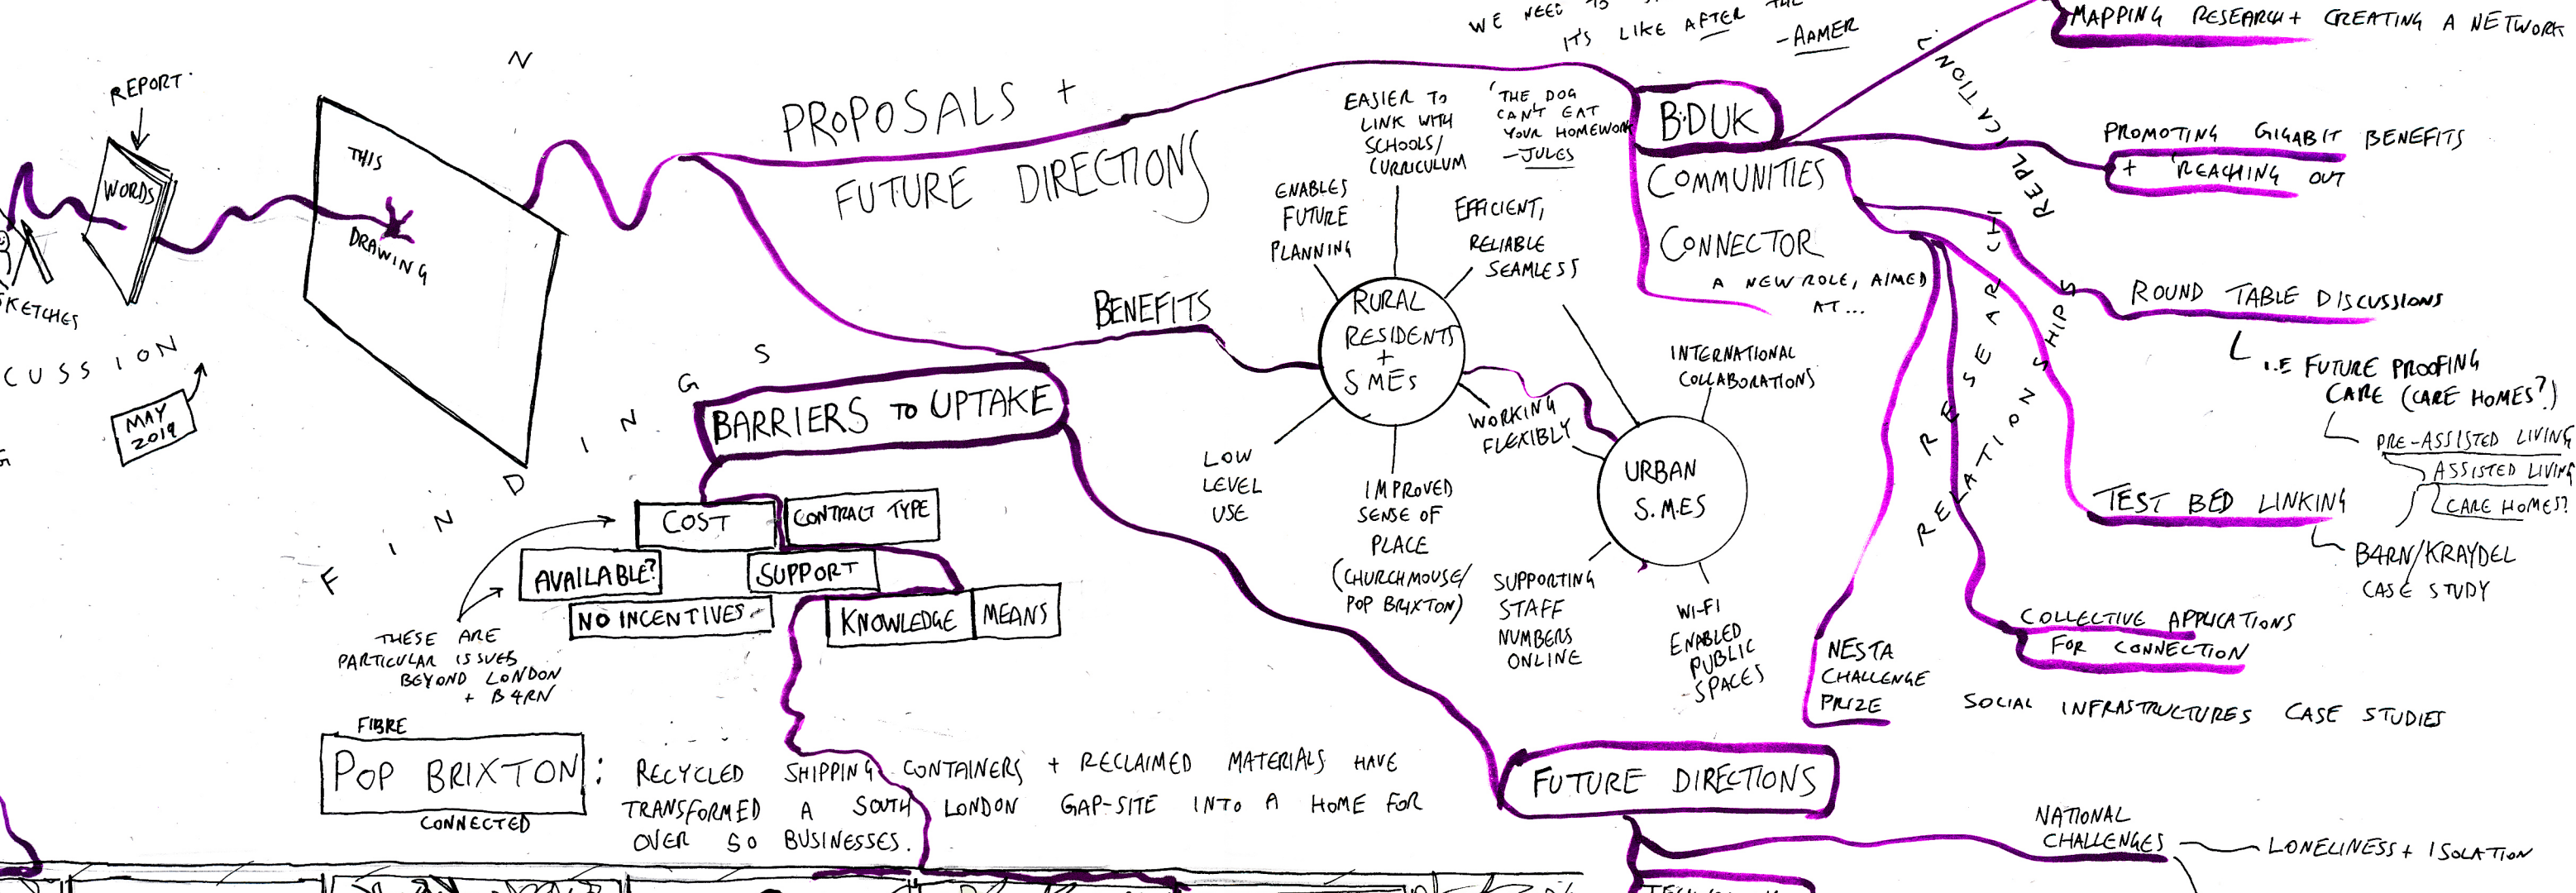 REPORT
WORDS
SKETCHES
CUSSION
MAY
2019
THIS
DRAWING
FINDINGS
N
PROPOSALS +
FUTURE DIRECTIONS
WE NEED TO
IT'S LIKE AFTER THE
-AAMER
BENEFITS
BARRIERS TO UPTAKE
COST
CONTRACT TYPE
AVAILABLE?
SUPPORT
NO INCENTIVES
KNOWLEDGE
MEANS
THESE ARE
PARTICULAR ISSUES
BEYOND LONDON
+ B4RN
FIBRE
POP BRIXTON:
CONNECTED
RECYCLED SHIPPING CONTAINERS + RECLAIMED MATERIALS HAVE
TRANSFORMED A SOUTH LONDON GAP-SITE INTO A HOME FOR
OVER 50 BUSINESSES.
RURAL
RESIDENTS
+
SMEs
ENABLES
FUTURE
PLANNING
EASIER TO
LINK WITH
SCHOOLS/
CURRICULUM
'THE DOG
CAN'T EAT
YOUR HOMEWORK
-JULES
EFFICIENT,
RELIABLE
SEAMLESS
LOW
LEVEL
USE
IMPROVED
SENSE OF
PLACE
(CHURCHMOUSE/
POP BRIXTON)
WORKING
FLEXIBLY
URBAN
S.M.ES
INTERNATIONAL
COLLABORATIONS
SUPPORTING
STAFF
NUMBERS
ONLINE
WI-FI
ENABLED
PUBLIC
SPACES
B:DUK
COMMUNITIES
CONNECTOR
A NEW ROLE, AIMED
AT...
REPLICATION
RESEARCH
RELATIONSHIPS
MAPPING RESEARCH + CREATING A NETWORK
PROMOTING GIGABIT BENEFITS
+ 'REACHING OUT
ROUND TABLE DISCUSSIONS
i.E FUTURE PROOFING
CARE (CARE HOMES?)
PRE-ASSISTED LIVING
ASSISTED LIVING
CARE HOMES?
TEST BED LINKING
B4RN/KRAYDEL
CASE STUDY
COLLECTIVE APPLICATIONS
FOR CONNECTION
NESTA
CHALLENGE
PRIZE
SOCIAL INFRASTRUCTURES CASE STUDIES
FUTURE DIRECTIONS
NATIONAL
CHALLENGES
LONELINESS + ISOLATION